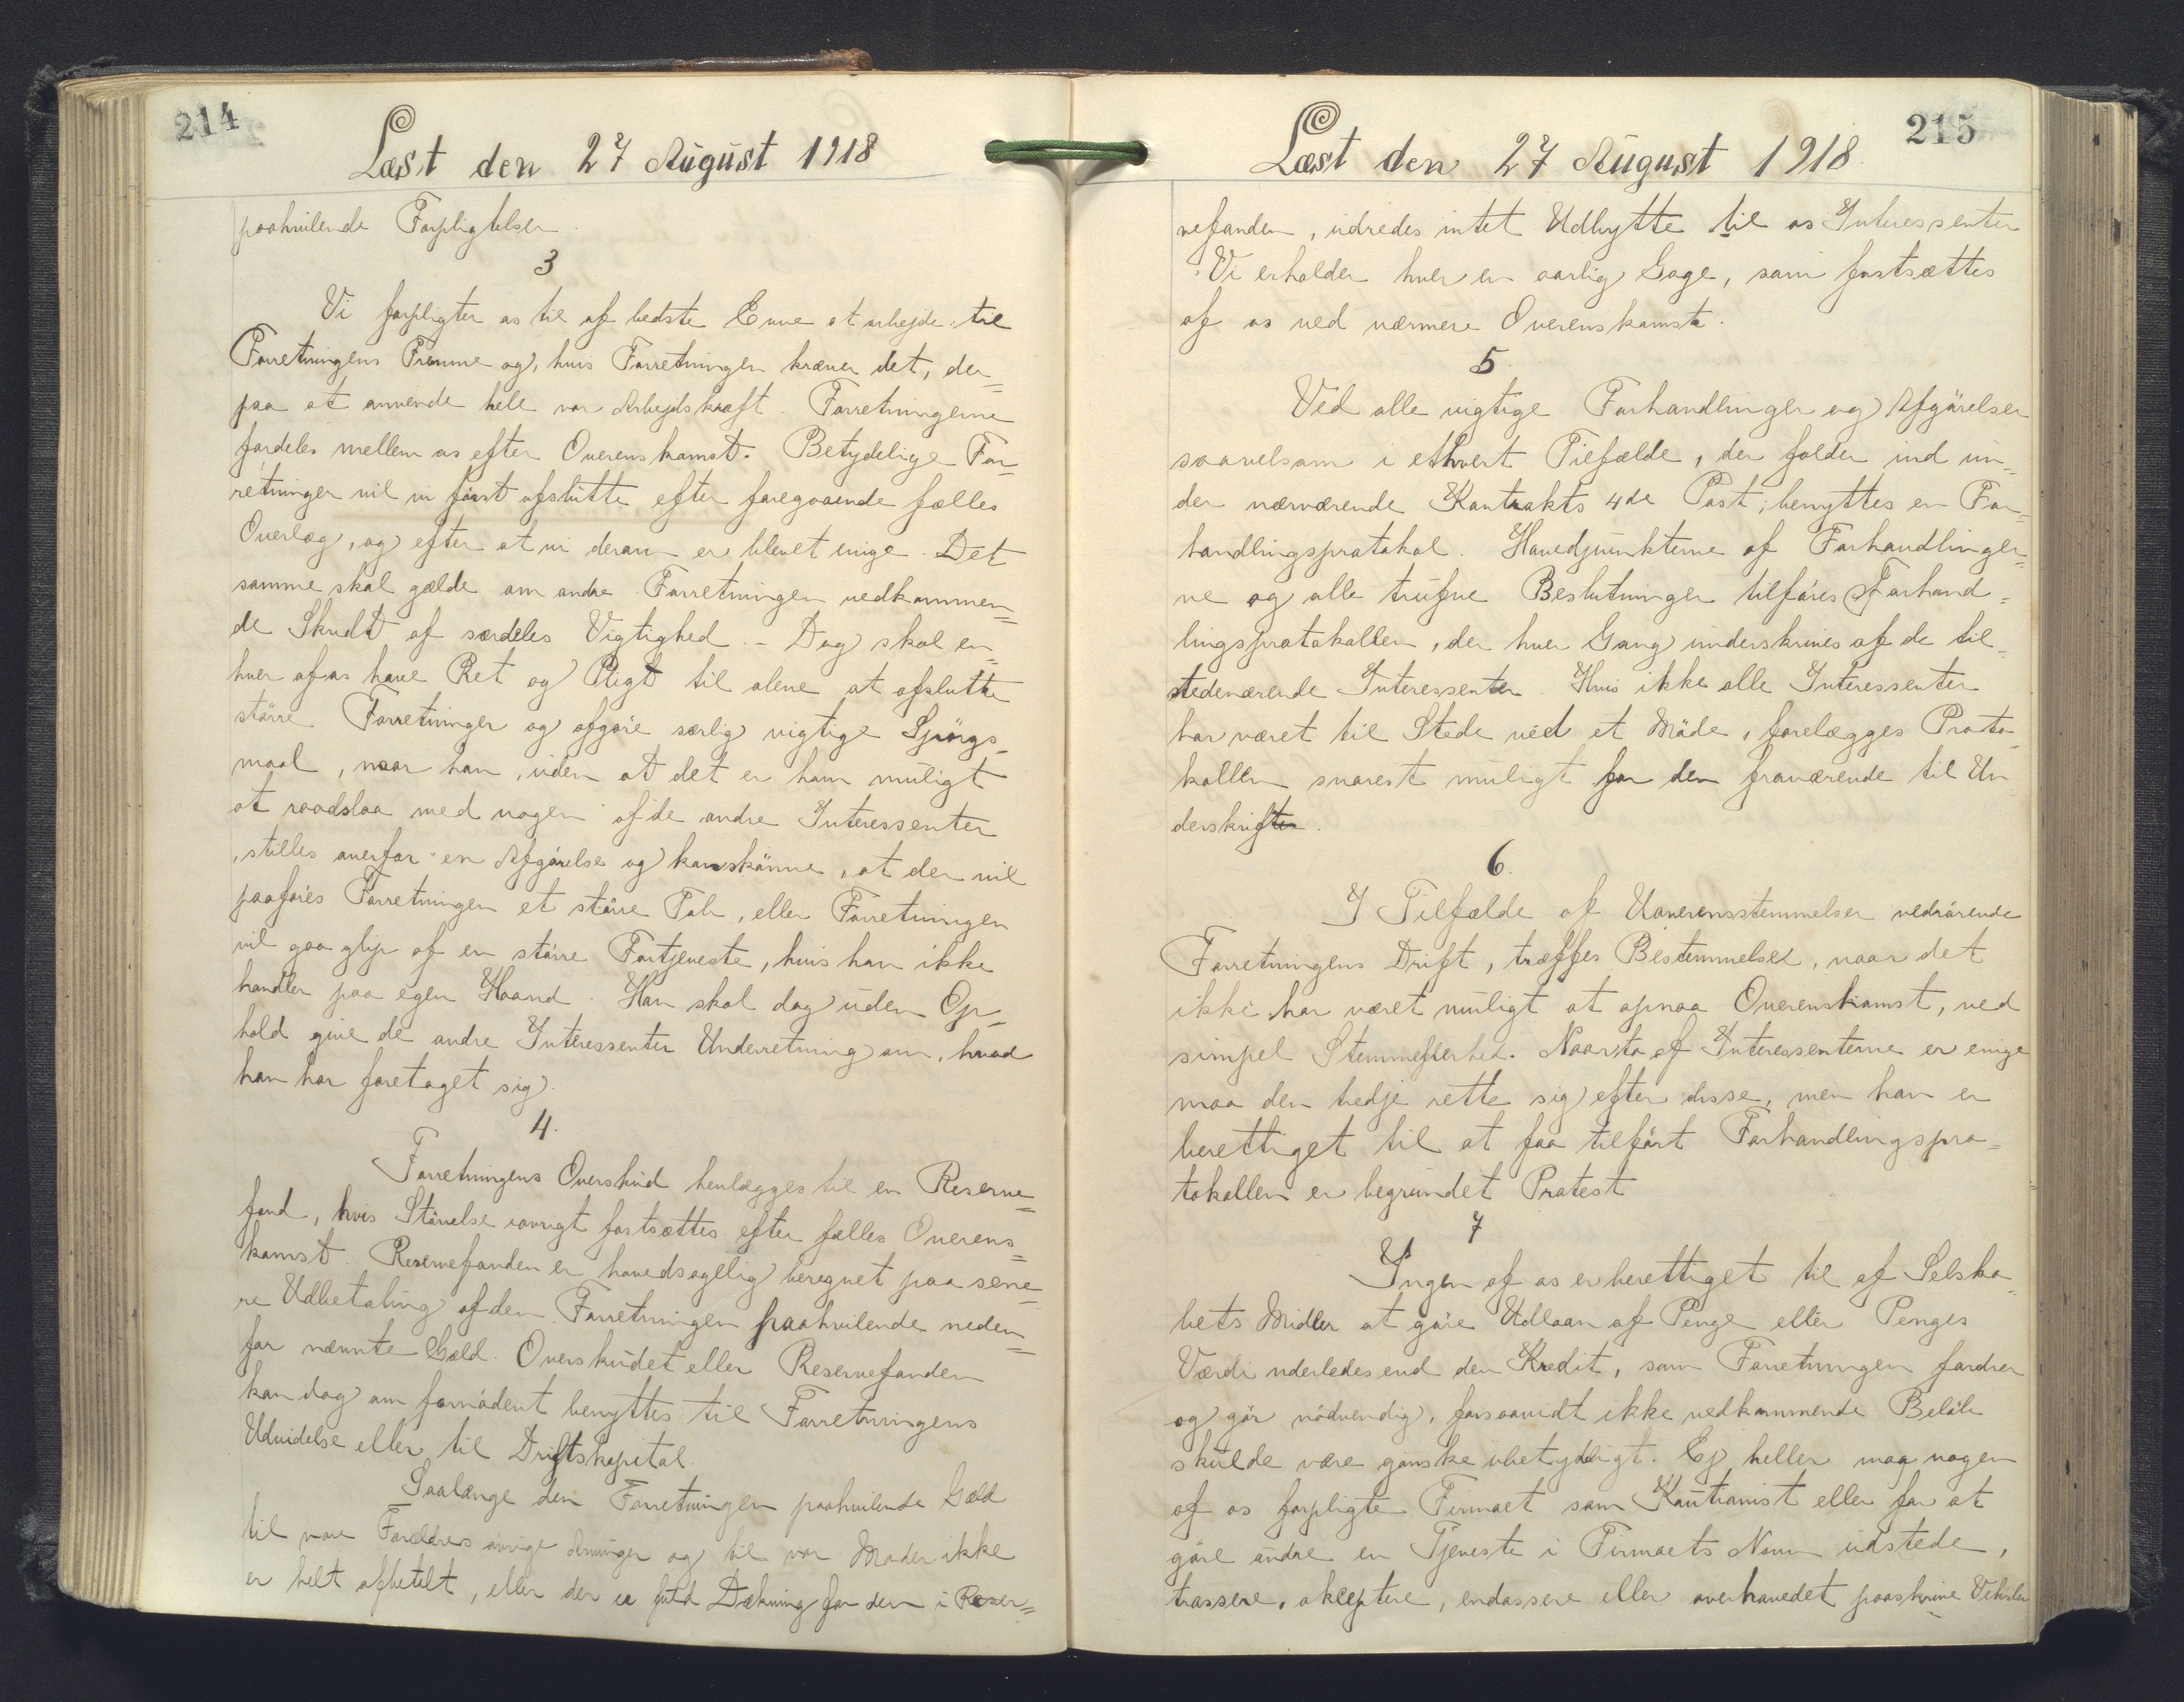 214
Læst den 27 August 1918
paahvilende Forpligtelser.
3
Vi forpligter os til af bedste Evne at arbejde til
Forretningens Fremme og, hvis Forretningen kræver det, der=
paa at anvende hele vor Arbejdskraft. Forretningerne
fordeles mellem os efter Overenskomst. Betydelige For=
retninger vil vi först afslutte efter foregaaende fælles
Overlæg, og efter at vi derom er blevet enige. Det
samme skal gælde om andre Forretningen vedkommen=
de Skridt af særdeles Vigtighed. - Dog skal en=
hver af os have Ret og Pligt til alene at afslutte
större Forretninger og afgöre særlig vigtige Spörgs=
maal, naar han, uden at det er ham muligt
at raadslaa med nogen af de andre Interessenter
, stilles overfor en Afgörelse og kan skönne, at der vil
paaföres Forretningen et större Tab, eller Forretningen
vil gaa glip af en större Fortjeneste, hvis han ikke
handler paa egen Haand. Han skal dog uden Op=
hold give de andre Interessenter Underretning om, hvad
han har foretaget sig.
4.
Forretningens Overskud henlægges til en Reserve=
fond, hvis Störrelse iövrigt fastsættes efter fælles Overens=
komst. Reservefonden er hovedsagelig beregnet paa sene=
re Udbetaling af den Forretningen paahvilende neden=
for nævnte Gæld. Overskudet eller Reservefonden
kan dog om fornödent benyttes til Forretningens
Udvidelse eller til Driftskapital.
Saalænge den Forretningen paahvilende Gæld
til vore Forældres övrige Arvinger og til vor Moder ikke
er helt afbetalt, eller der er fuld Dækning for den i Reser=
215
Læst den 27 August 1918.
vefonden, udredes intet Udbytte til os Interessenter
. Vi erholder hver en aarlig Gage, som fastsættes
af os ved nærmere Overenskomst.
5.
Ved alle vigtige Forhandlinger og Afgörelser
saavelsom i ethvert Tilfælde, der falder ind un=
der nærværende Kontrakts 4de Post, benyttes en For=
handlingsprotokol. Hovedpunkterne af Forhandlinger=
ne og alle trufne Beslutninger tilföres Forhand=
lingsprotokollen, der hver Gang underskrives af de til=
stedeværende Interessenter. Hvis ikke alle Interessenter
har været til Stede ved et Möde, forelægges Proto
kollen snarest muligt for den fraværende til Un
derskriften.
6.
I Tilfælde af Uoverensstemmelser vedrörende
Forretningens Drift, træffes Bestemmelser, naar det
ikke har været muligt at opnaa Overenskomst, ved
simpel Stemmeflerhed. Naar to af Interessenterne er enige
maa den tredje rette sig efter disse, men han er
berettiget til at faa tilfört Forhandlingspro=
tokollen en begrundet Protest
7
Ingen af os er berettiget til af Selska=
bets Midler at göre Udlaan af Penge eller Penges
Værdi anderledes end den Kredit, som Forretningen fordrer
og gör nödvendig, forsaavidt ikke vedkommende Belöb
skulde være ganske ubetydeligt. Ej heller maa nogen
af os forpligte Firmaet som Kautionist eller for at
göre andre en Tjeneste i Firmaets Navn udstede,
trassere, akceptere, endossere eller overhovedet paaskrive Veksler